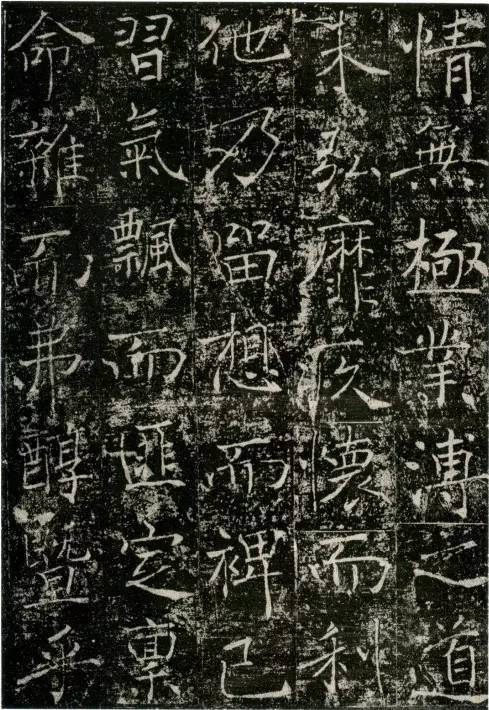 情無極業溥之道
未弘靡疚懷而利
他乃留想而裨己
習氣飄而匪定稟
命雜而弗醇暨乎